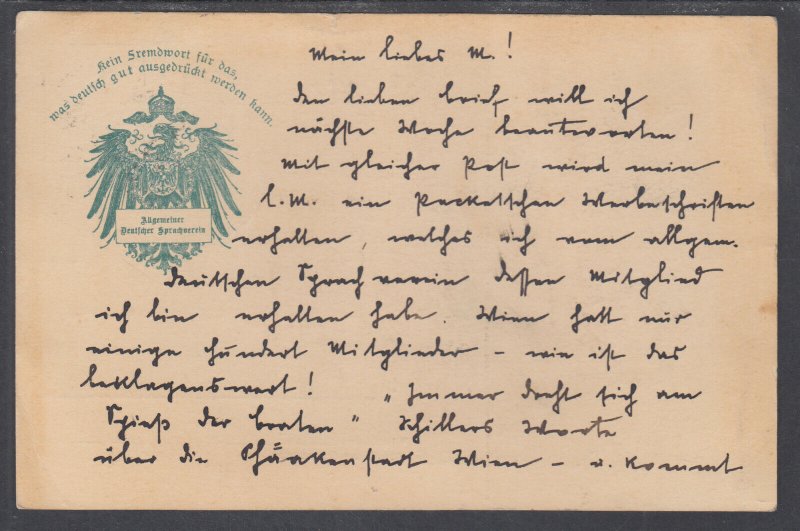 Kein Fremdwort für das,
was deutsch gut ausgedrückt werden kann.
Allgemeiner
Deutscher Sprachverein
Mein liebes M.!
den lieben brief will ich
nächste Woche beantworten!
Mit gleicher Post wird mein
l. M. ein Packetchen Werbeschriften
erhalten, welches ich vom allgem.
deutschen Sprachverein dessen Mitglied
ich bin erhalten habe. Wien hatt nur
einige Hundert Mitglieder – wie ist das
beklagenswert! „Immer dreht sich am
Spieß der braten" Schillers Worte
über die Phäakenstadt Wien – u. kommt